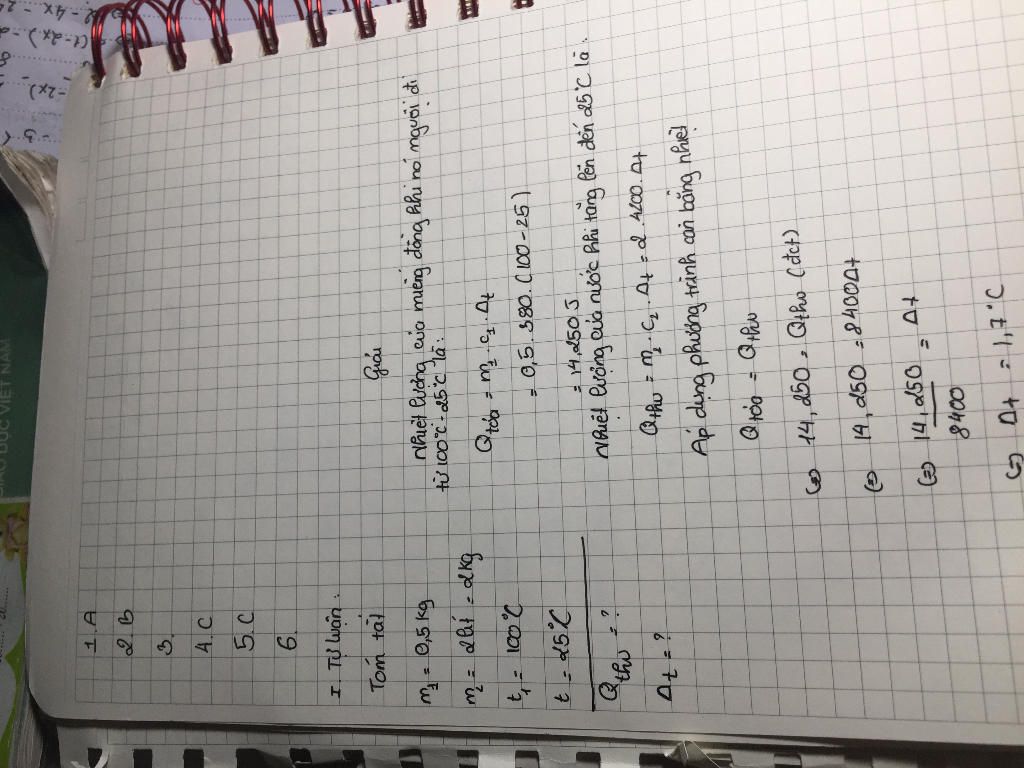 1. A
2. B
3.
4. C
5. C
6.
I. Tự luận:
Tóm tắt
m₁ = 0,5kg
m₂ = 2lít = 2kg
t₁ = 100°C
t = 25°C
Qthu = ?
Δt = ?
Giải
Nhiệt lượng của miếng đồng khi nó nguội đi
từ 100°C - 25°C là:
Qtỏa = m₁ . c₁ . Δt
= 0,5 . 380 . (100 - 25)
= 14,250J
Nhiệt lượng của nước khi tăng lên đến 25°C là:
Qthu = m₂ . c₂ . Δt = 2.4200.Δt
Áp dụng phương trình cân bằng nhiệt
Qtỏa = Qthu
(=) 14,250 = Qthu (đct)
(=) 14,250 = 8400Δt
(=) 14,250 / 8400 = Δt
(=) Δt = 1,7°C
DỤC VIỆT NAM